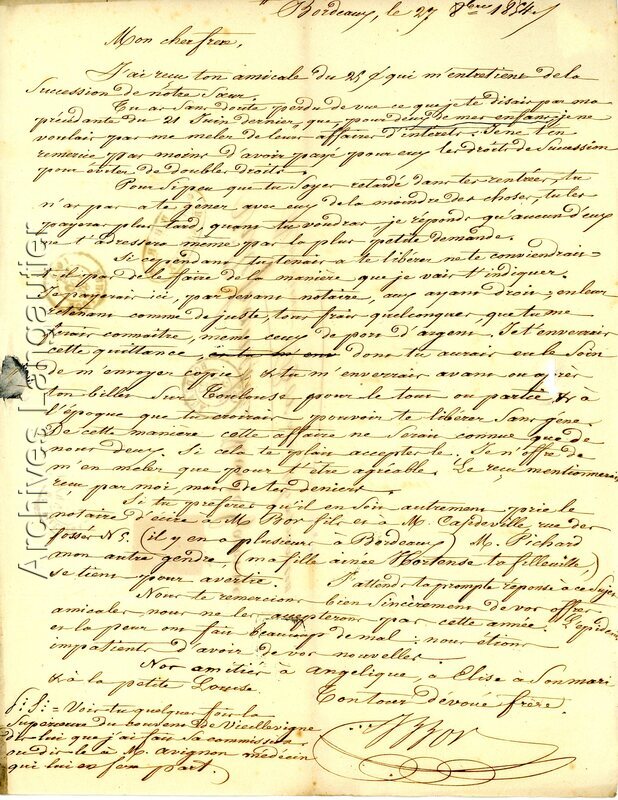 Bordeaux, le 27 8bre 1854
Mon cher frere,
J'ai reçu ton amicale du 25 qui m'entretient de la
Succession de notre Sœur.
Tu as Sans doute perdu de vue ce que je te disais par ma
précédante du 21 Juin dernier, que pour deux de mes enfans, je ne
voulais pas me meler de leurs affaires d'interets: Je ne t'en
remercie pas moins d'avoir payé pour eux les droits de Sucession
pour eviter de doubles droits.
Pour Si peu que tu Soyes retardé dans tes rentrées, tu
n'as pas a te gener avec eux de la moindre des choses, tu les
payeras plus tard, quant tu voudras je réponds qu'aucun d'eux
ne t'adressera même pas la plus petite demande.
Si cependant tu tenais a te libérer ne te conviendrait-
il pas de le faire de la manière que je vais t'indiquer.
Je payerais ici, par devant notaire, aux ayant droit, en leur
retenant comme de juste, tous frais quelconques que tu me
ferais connaitre, même ceux de port d'argent. Je t'enverrais
cette quittance dont tu aurais eu le Soin
de m'envoyer copie & tu m'enverrais avant ou après
ton billet Sur Toulouse pour le tout ou partie & à
l'époque que tu croirais pouvoir te libérer Sans gêne.
De cette manière cette affaire ne Serait connue que de
nous deux. Si cela te plait accepte le. Je n'offre de
m'en meler que pour t'être agréable. Le reçu mentionnerait
reçu par moi mais de tes deniers.
Si tu préferes qu'il en Soit autrement prie le
notaire d'écrire à M. Bor fils et à M. Capdeville rue des
fosses N 5. (il y en a plusieurs à Bordeaux) M. Pichard
mon autre gendre, (ma fille ainée Hortense ta filleulle,)
se tient pour avertie. J'attends ta prompte réponse à ce Sujet
Nous te remercions bien Sincèrement de vos offres
amicales, nous ne les accepterons pas cette année. L'epidemie
et la peur ont fait beaucoup de mal: nous étions
impatients d'avoir de vos nouvelles.
Nos amitiés à Angelique, à Elise à Son mari
& à la petite Louise.
Ton tout dévoué frère.
P: S: = Vois-tu quelques fois la
Superieure du couvent De Vieillevigne
dis lui que j'ai fait Sa commission
ou dis le à M. avignon médecin
qui lui en fera part.)
Bor
Archives Langautier